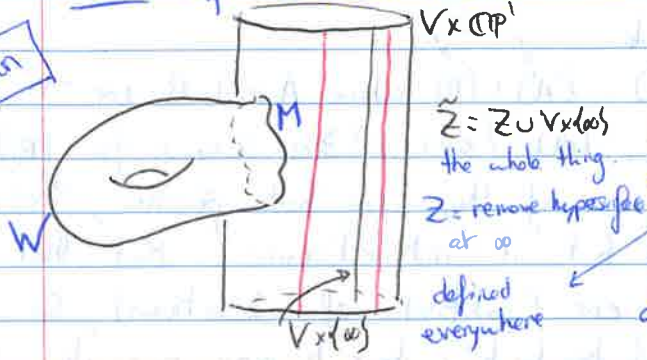 V × ℂℙ¹
M
Z̃ = Z ∪ V×{∞}
the whole thing.
Z = remove hypersurface
at ∞
W
defined
everywhere
V×{∞}